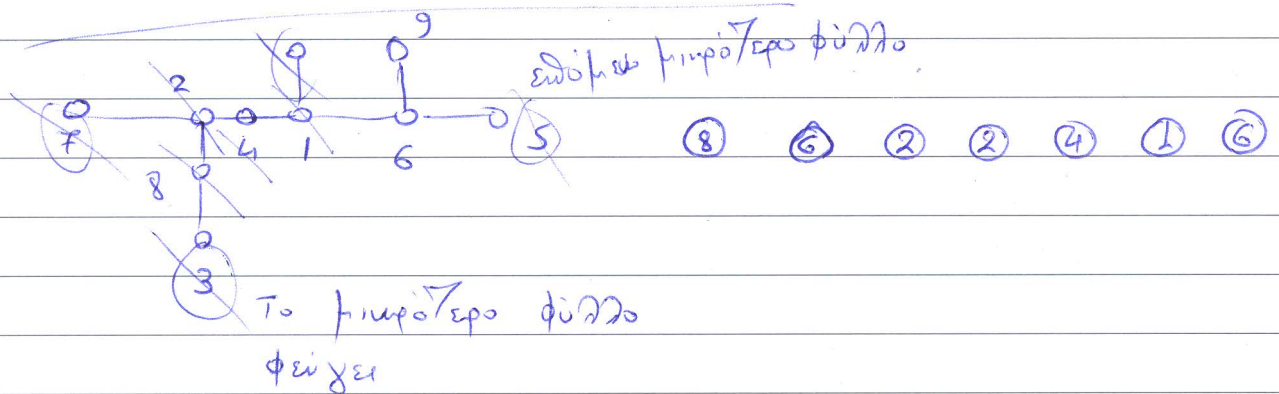 9
επόμενο μικρότερο φύλλο
2
7 4 1 6 5 8 6 2 2 4 1 6
8
3
Το μικρότερο φύλλο
φεύγει